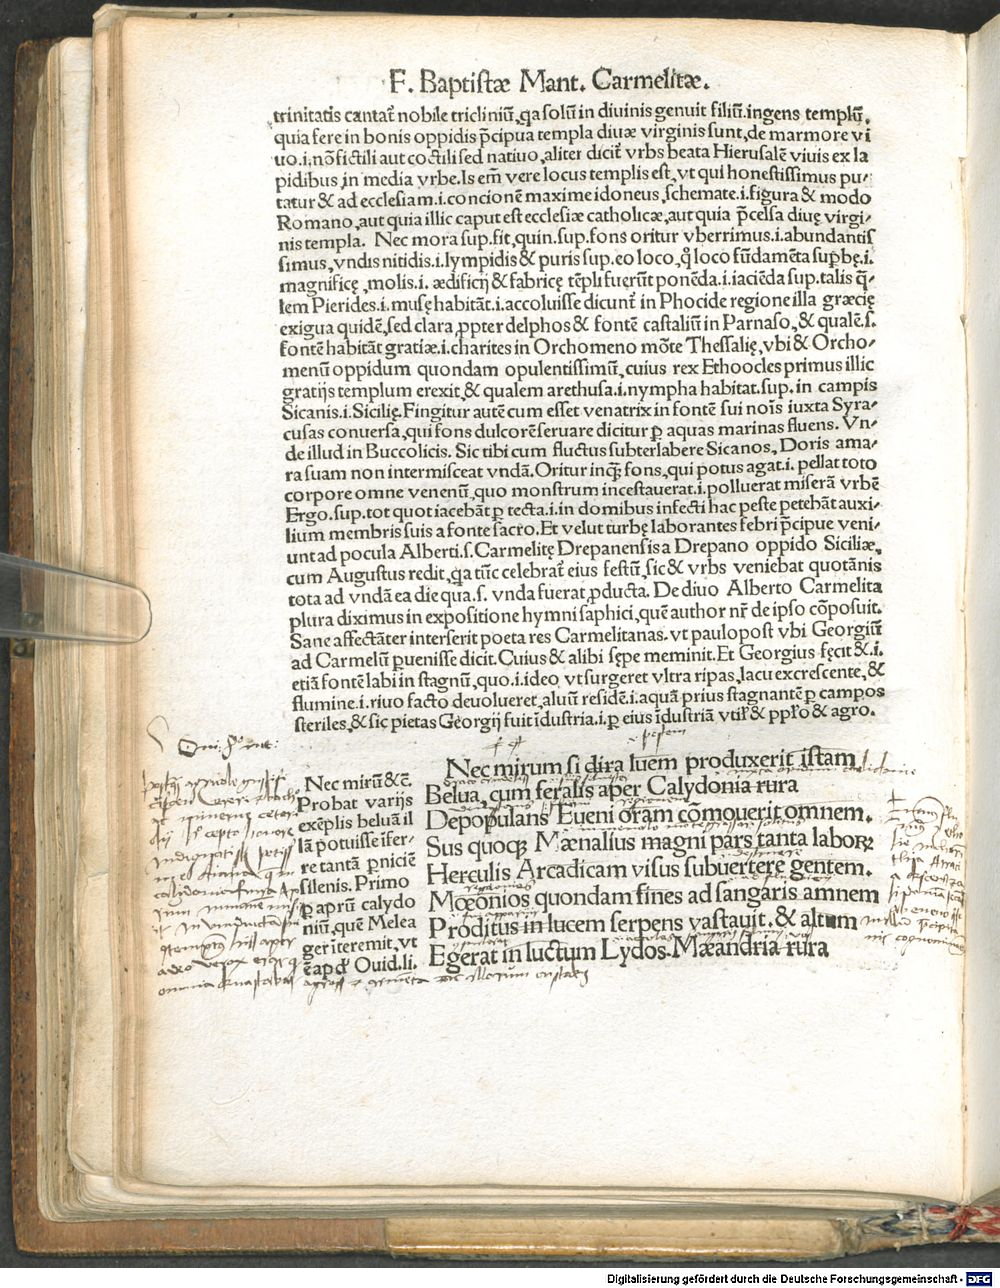 F. Baptistæ Mant. Carmelitæ.
trinitatis cantat᷑ nobile tricliniũ, qa solũ in diuinis genuit filiũ. ingens templũ,
quia fere in bonis oppidis p̃cipua templa diuæ virginis sunt, de marmore vi
uo .i. nõ fictili aut coctili sed natiuo, aliter dicit᷑ vrbs beata Hierusalẽ viuis ex la
pidibus, in media vrbe. Is em̃ vere locus templis est, vt qui honestissimus pu-
tatur & ad ecclesiam .i. concionẽ maxime idoneus, schemate .i. figura & modo
Romano, aut quia illic caput est ecclesiæ catholicæ, aut quia p̃celsa diuę virgi-
nis templa. Nec mora sup. fit, quin. sup. fons oritur vberrimus .i. abundantis
simus, vndis nitidis .i. lympidis & puris sup. eo loco, q̊ loco fũdamẽta supbę .i.
magnificę, molis .i. ædificij & fabricę tẽpli fuerũt ponẽda .i. iaciẽda sup. talis q̃
lem Pierides .i. musę habitãt .i. accoluisse dicunt᷑ in Phocide regione illa græcię
exigua quidẽ, sed clara, ppter delphos & fontẽ castaliũ in Parnaso, & qualẽ .s.
fontẽ habitãt gratiæ .i. charites in Orchomeno mõte Thessalię, vbi & Orcho-
menũ oppidum quondam opulentissimũ, cuius rex Ethoocles primus illic
gratijs templum erexit, & qualem arethusa .i. nympha habitat. sup. in campis
Sicanis .i. Sicilię. Fingitur autẽ cum esset venatrix in fontẽ sui nois iuxta Syra-
cusas conuersa, qui fons dulcorẽ seruare dicitur p aquas marinas fluens. Vn-
de illud in Buccolicis. Sic tibi cum fluctus subterlabere Sicanos, Doris ama-
ra suam non intermisceat vndã. Oritur inq̃ fons, qui potus agat .i. pellat toto
corpore omne venenũ, quo monstrum incestauerat .i. polluerat miserã vrbẽ
Ergo. sup. tot quot iacebãt p tecta .i. in domibus infecti hac peste petebãt auxi-
lium membris suis a fonte sacro. Et velut turbę laborantes febri p̃cipue veni-
unt ad pocula Alberti .s. Carmelitę Drepanensis a Drepano oppido Siciliæ,
cum Augustus redit, qa tũc celebrat᷑ eius festũ, sic & vrbs veniebat quotãnis
tota ad vndã ea die qua .s. vnda fuerat pducta. De diuo Alberto Carmelita
plura diximus in expositione hymni saphici, quẽ author nr̃ de ipso cõposuit.
Sane affectãter interserit poeta res Carmelitanas. vt paulopost vbi Georgiũ
ad Carmelũ puenisse dicit. Cuius & alibi sępe meminit. Et Georgius fęcit & .i.
etiã fontẽ labi in stagnũ, quo .i. ideo, vt surgeret vltra ripas, lacu excrescente, &
flumine .i. riuo facto deuolueret, aluũ residẽ .i. aquã prius stagnantẽ p campos
steriles, & sic pietas Georgij fuit ĩdustria .i. p eius ĩdustriã vtil̃ & ppl̃o & agro.
Nec mirum si dira luem produxerit istam
Belua, cum feralis aper Calydonia rura
Depopulans Eueni oram cõmouerit omnem.
Sus quoq; Mænalius magni pars tanta laborꝝ
Herculis Arcadicam visus subuertere gentem.
Mœonios quondam fines ad sangaris amnem
Proditus in lucem serpens vastauit, & altum
Egerat in luctum Lydos. Mæandria rura
Nec mirũ & c̃.
Probat varijs
exẽplis beluã il
lã potuisse ifer-
re tantã pniciẽ
silenis. Primo
p aprũ calydo
niũ, quẽ Melea
ger ĩteremit, vt
ẽ apd̃ Ouid. li.
Digitalisierung gefördert durch die Deutsche Forschungsgemeinschaft - DFG